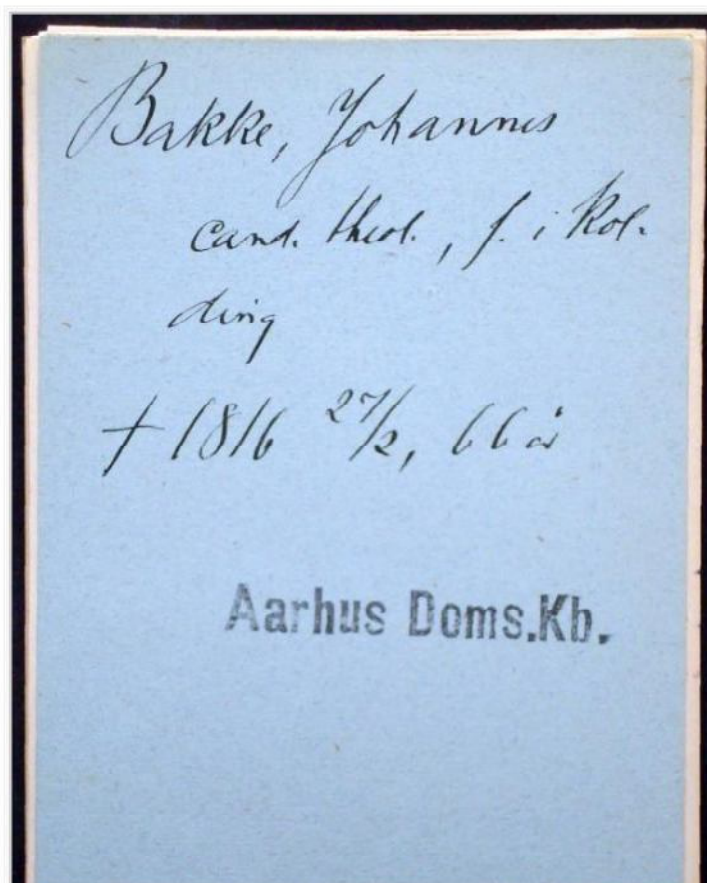 Bakke, Johannes
cand. theol., f. i Kol-
ding
† 1816 27/2, 66 år
Aarhus Doms.Kb.